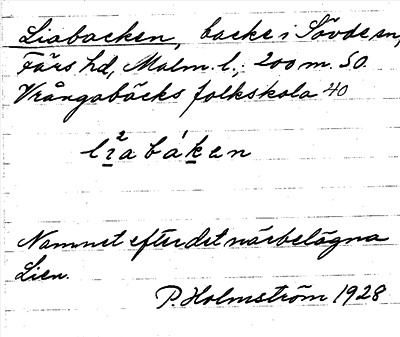 Liabacken, backe i Sövde sn,
Färs hd, Malm. l.; 200 m. SO.
Vrångabäcks folkskola 40
li²a báken
Namnet efter det närbelägna
Lien.
P. Holmström 1928